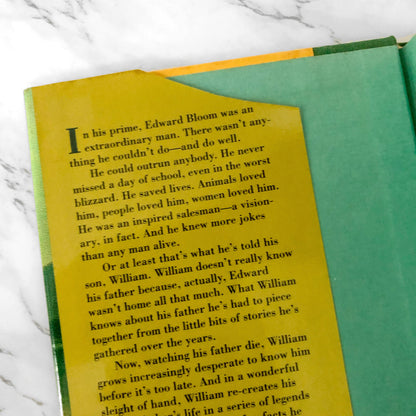 In his prime, Edward Bloom was an
extraordinary man. There wasn't any-
thing he couldn't do—and do well.
He could outrun anybody. He never
missed a day of school, even in the worst
blizzard. He saved lives. Animals loved
him, people loved him, women loved him.
He was an inspired salesman—a vision-
ary, in fact. And he knew more jokes
than any man alive.
Or at least that's what he's told his
son, William. William doesn't really know
his father because, actually, Edward
wasn't home all that much. What William
knows about his father he's had to piece
together from the little bits of stories he's
gathered over the years.
Now, watching his father die, William
grows increasingly desperate to know him
before it's too late. And in a wonderful
sleight of hand, William re-creates his
life in a series of legends
facts he